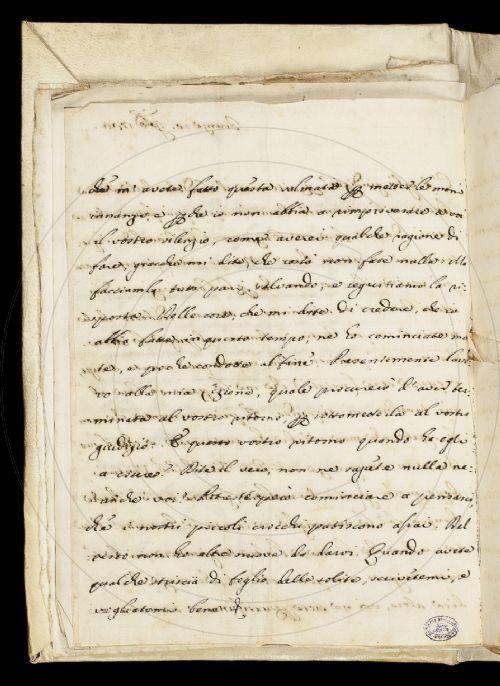 che m'avete fatto questa volmate per metter le mani
innanzi, e perche io non abbia a rimproverare a voi
il vostro silenzio, come averei qualche ragione di
fare, giacche mi dite, che costì non fate nulla. Ma
facciamla tutti pari, volando, e seguitiamo la ri=
sposta. Delle cose, che mi dite di credere, che io
abbia fatte in questo tempo, ne ho cominciate mol
te, e poche condotte al fine. Presentemente lavo
ro alla mia quale procurerò d'aver ter=
minata al vostro ritorno, per sottometterla al vostro
giudizio. E questo vostro ritorno quando ha egli
a essere? Dite il vero, non ne sapete nulla ne=
anche voi? Ditetespesio cominciare a pensarci,
che i nostri piccoli crocchi patiscono assai. Del
resto non ho altre nuove da darvi. Quando avete
qualche striscia di foglio delle solite, scrivetemi, e
vogliatemi bene